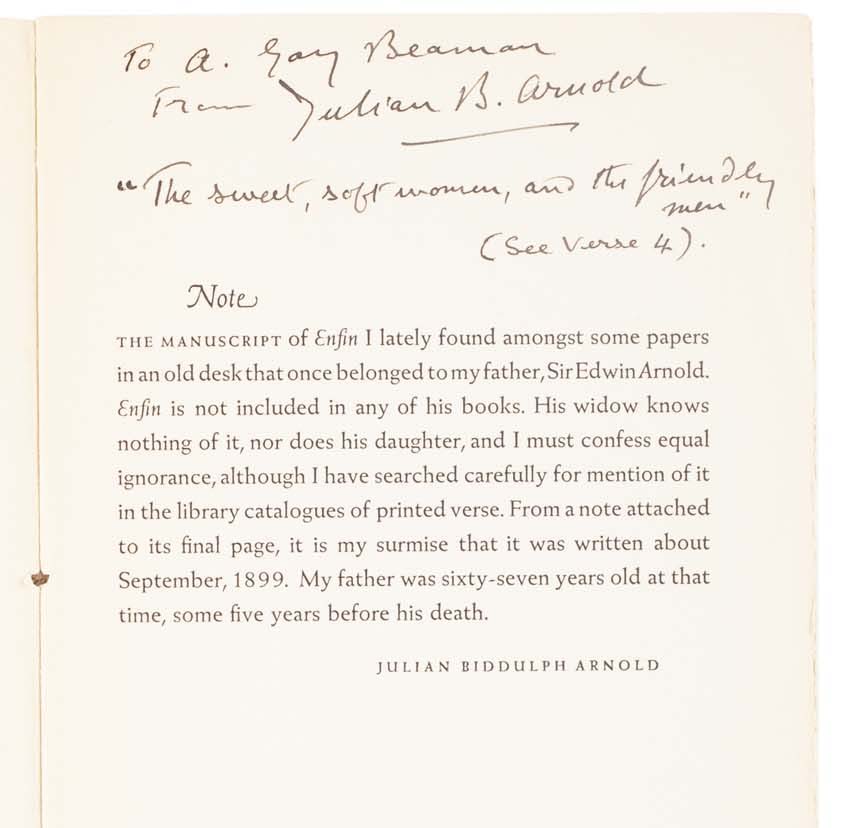 To A. Gay Beaman
From Julian B. Arnold
"The sweet, soft women, and the friendly
men"
(See Verse 4).
Note
THE MANUSCRIPT of Enfin I lately found amongst some papers
in an old desk that once belonged to my father, Sir Edwin Arnold.
Enfin is not included in any of his books. His widow knows
nothing of it, nor does his daughter, and I must confess equal
ignorance, although I have searched carefully for mention of it
in the library catalogues of printed verse. From a note attached
to its final page, it is my surmise that it was written about
September, 1899. My father was sixty-seven years old at that
time, some five years before his death.
JULIAN BIDDULPH ARNOLD